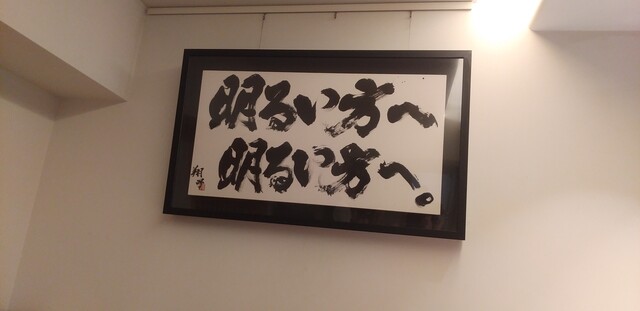 明るい方へ
明るい方へ。